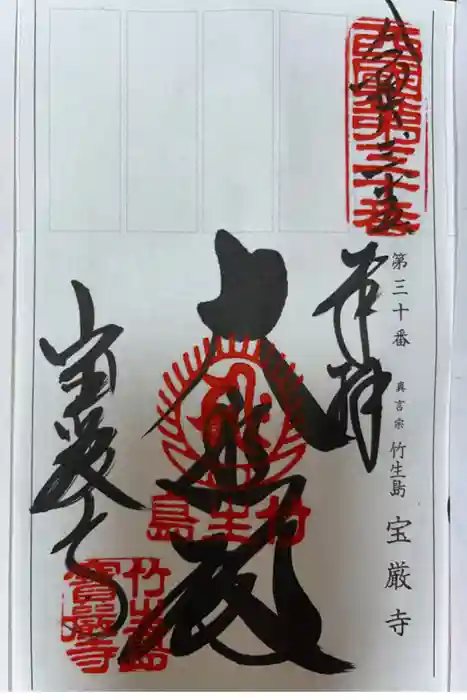 西國第三十番
第三十番 真言宗 竹生島 宝厳寺
奉拝
大悲殿
竹生島
宝厳寺
竹生島
寶嚴寺